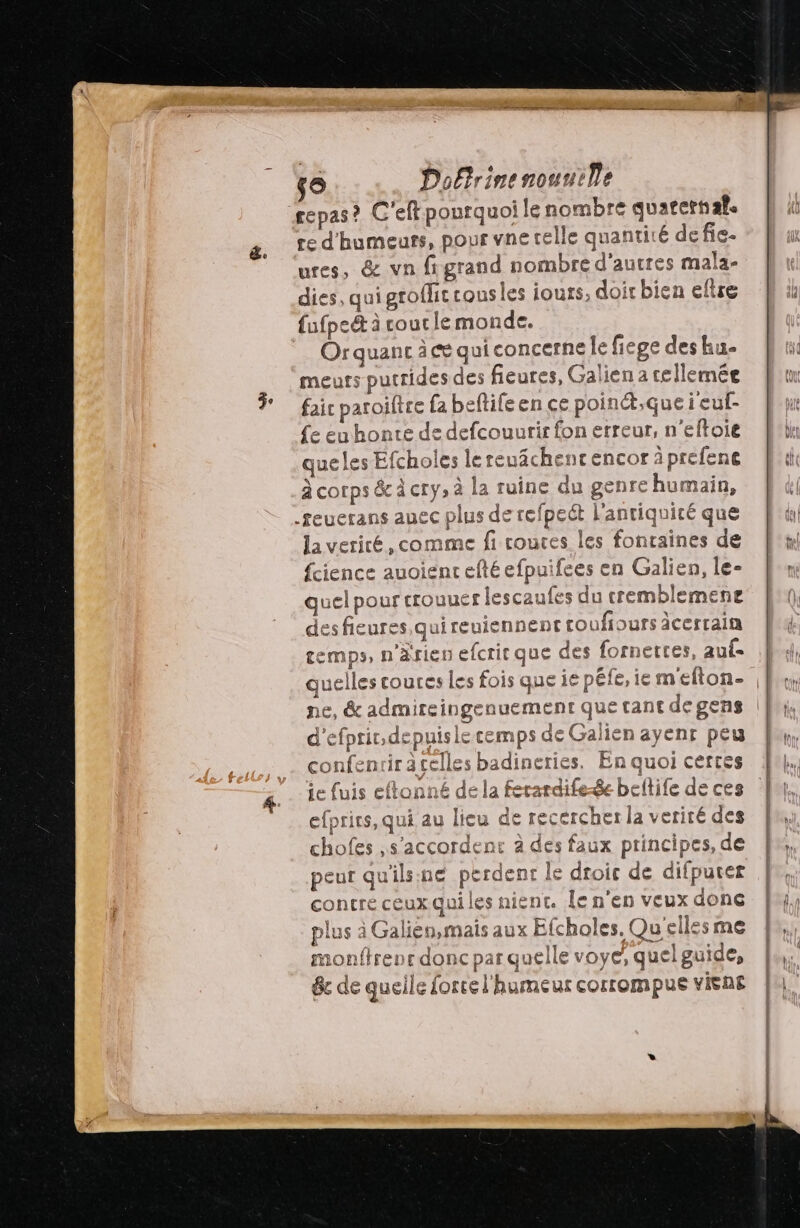 50 Doctrine nouuelle
repas? C'eſt pourquoi le nombre quaternai-
2. re d'humeurs, pour vne telle quantité de fie-
ures, & vn ſi grand nombre d'autres mala-
dies, qui groſſit tous les iours, doit bien eſtre
ſuſpect à tout le monde.
Or quant à ce qui concerne le ſiege des hu-
meurs putrides des fieures, Galien a tellemēt
3. fait paroiſtre ſa beſtiſe en ce poinct, que i'euſ-
ſe eu honte de deſcouurir ſon erreur, n'eſtoit
que les Eſcholes le reuâchent encor à preſent
à corps & à cry, à la ruine du genre humain,
reuerans auec plus de reſpect l'antiquité que
la verité, comme ſi toutes les fontaines de
ſcience auoient eſté eſpuiſees en Galien, le-
quel pour trouuer les cauſes du tremblement
des fieures, qui reuiennent touſiours à certain
temps, n'a rien eſcrit que des ſornettes, auſ-
quelles toutes les fois que ie pēſe, ie m'eſton-
ne, & admire ingenuement que tant de gens
d'eſprit, depuis le temps de Galien ayent peu
conſentir à telles badineries. En quoi certes
4. ie ſuis eſtonné de la ferardiſe & beſtiſe de ces
eſprits, qui au lieu de recercher la verité des
choſes, s'accordent à des faux principes, de
peur qu'ils ne perdent le droit de diſputer
contre ceux qui les nient. Ie n'en veux donc
plus à Galien, mais aux Eſcholes. Qu'elles me
monſtrent donc par quelle voye, quel guide,
& de quelle ſorte l'humeur corrompue vient